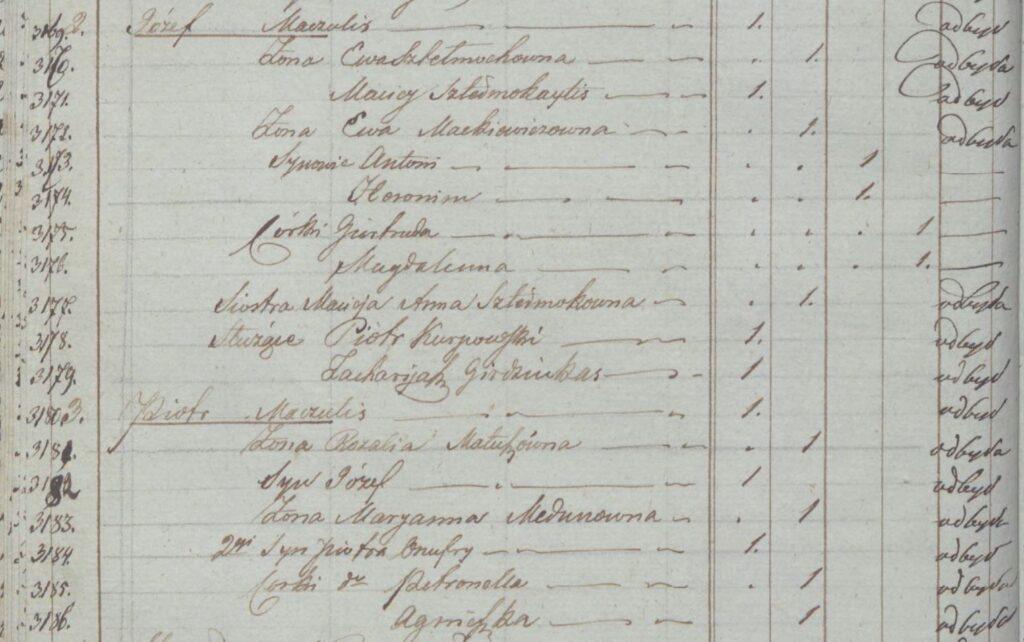 3169. 2. Józef Maczulis 1. odbył
3170. Żona Ewa Szletmochowna 1. odbyła
3171. Maciey Szledmokaytis 1. odbył
3172. Żona Ewa Mackiewiczowna 1. odbyła
3173. Synowie Antoni 1
3174. Heronim 1.
3175. Córki Giertruda 1
3176. Magdalenna 1.
3177. Siostra Macieja Anna Szledmokowna 1. odbyła
3178. Służące Piotr Kurpowski 1. odbył
3179. Zacharijasz Girdziukas 1 odbył
3180. 3. Piotr Maczulis 1. odbył
3181. Żona Rozalia Matuszówna 1 odbyła
3182 Syn Józef 1 odbył
3183. Żona Maryanna Medunowna 1 odbyła
3184. 2gi Syn Piotra Onufry 1. odbył
3185. Corki dto Petronella 1 odbyła
3186. Agnieszka 1 odbyła